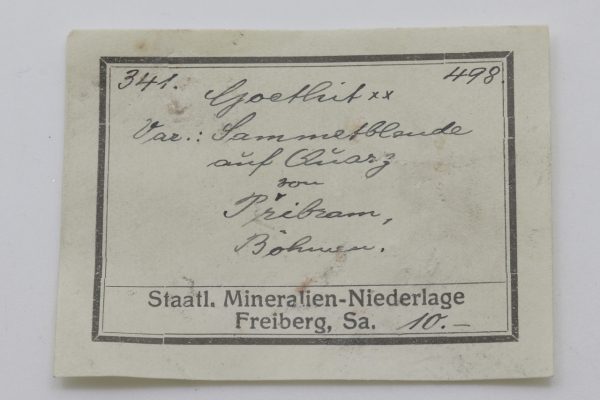 341. 498.
Goethit xx
Var.: Sammetblende
auf Quarz
von
Přibram,
Böhmen.
Staatl. Mineralien-Niederlage
Freiberg, Sa. 10.-